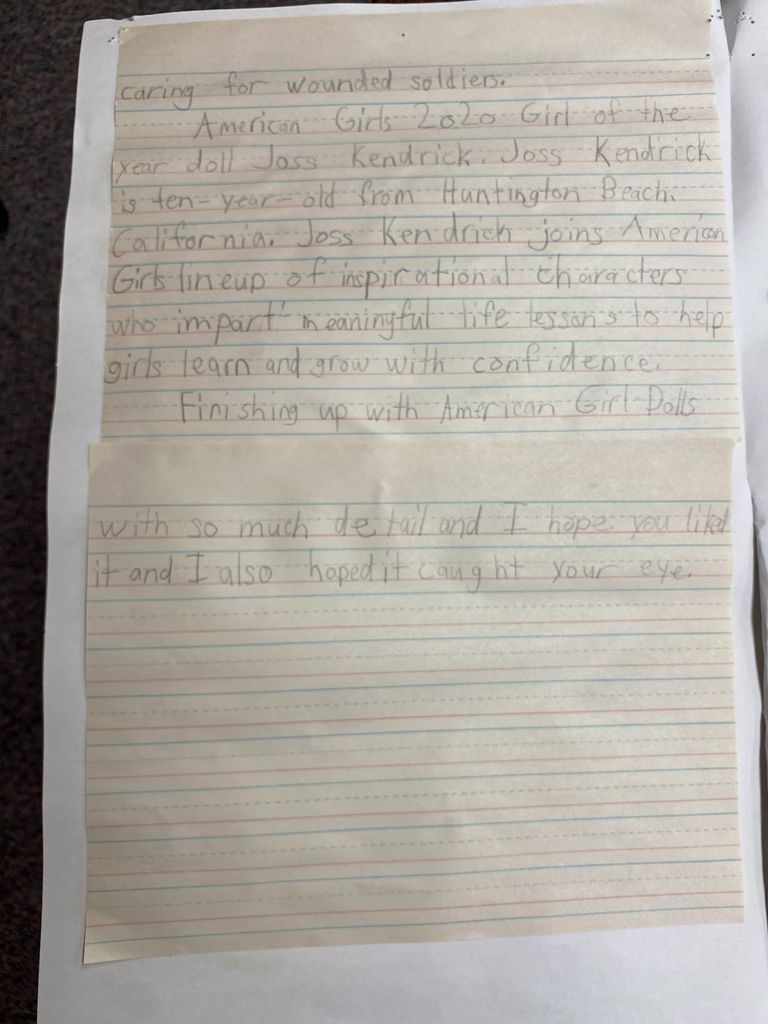 caring for wounded soldiers.
American Girls 2020 Girl of the
year doll Joss Kendrick. Joss Kendrick
is ten-year-old from Huntington Beach.
California. Joss Kendrich joins American
Girls lineup of inspirational characters
who impart meaningful life lessons to help
girls learn and grow with confidence.
Finishing up with American Girl Dolls
with so much detail and I hope you liked
it and I also hoped it caught your eye.